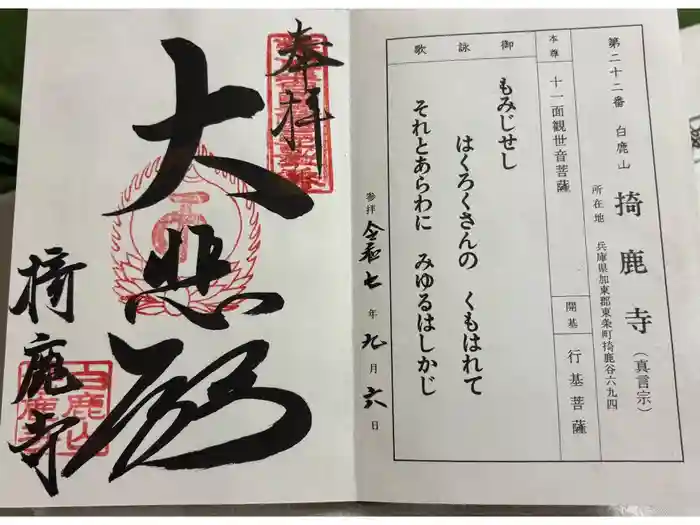 第二十二番 白鹿山
掎鹿寺（真言宗）
所在地 兵庫県加東郡東条町掎鹿谷六九四
本尊 十一面観世音菩薩
開基 行基菩薩
御詠歌
もみじせし
はくろくさんの くもはれて
それとあらわに みゆるはしかじ
参拝 令和七年九月六日
奉拝
大悲殿
掎鹿寺
白鹿山